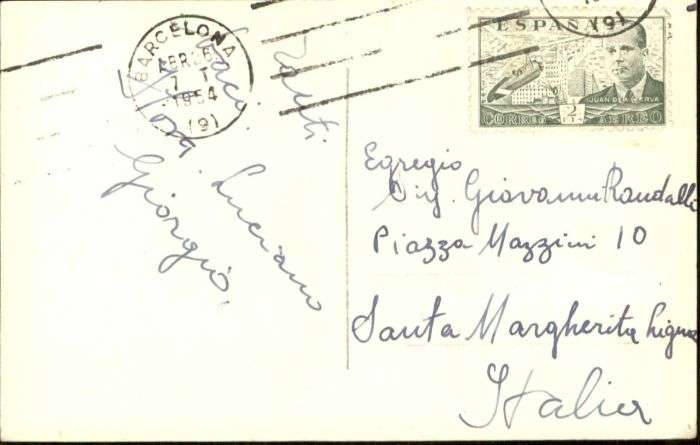 BARCELONA
ABR
7 T
1954
(9)
(9)
ESPAÑA
JUAN DE LA CIERVA
2
PTS
CORREO AEREO
Baci tanti
Luciano
Giorgio.
Egregio
Sig. Giovanni Randalli
Piazza Mazzini 10
Santa Margherita Ligure
Italia